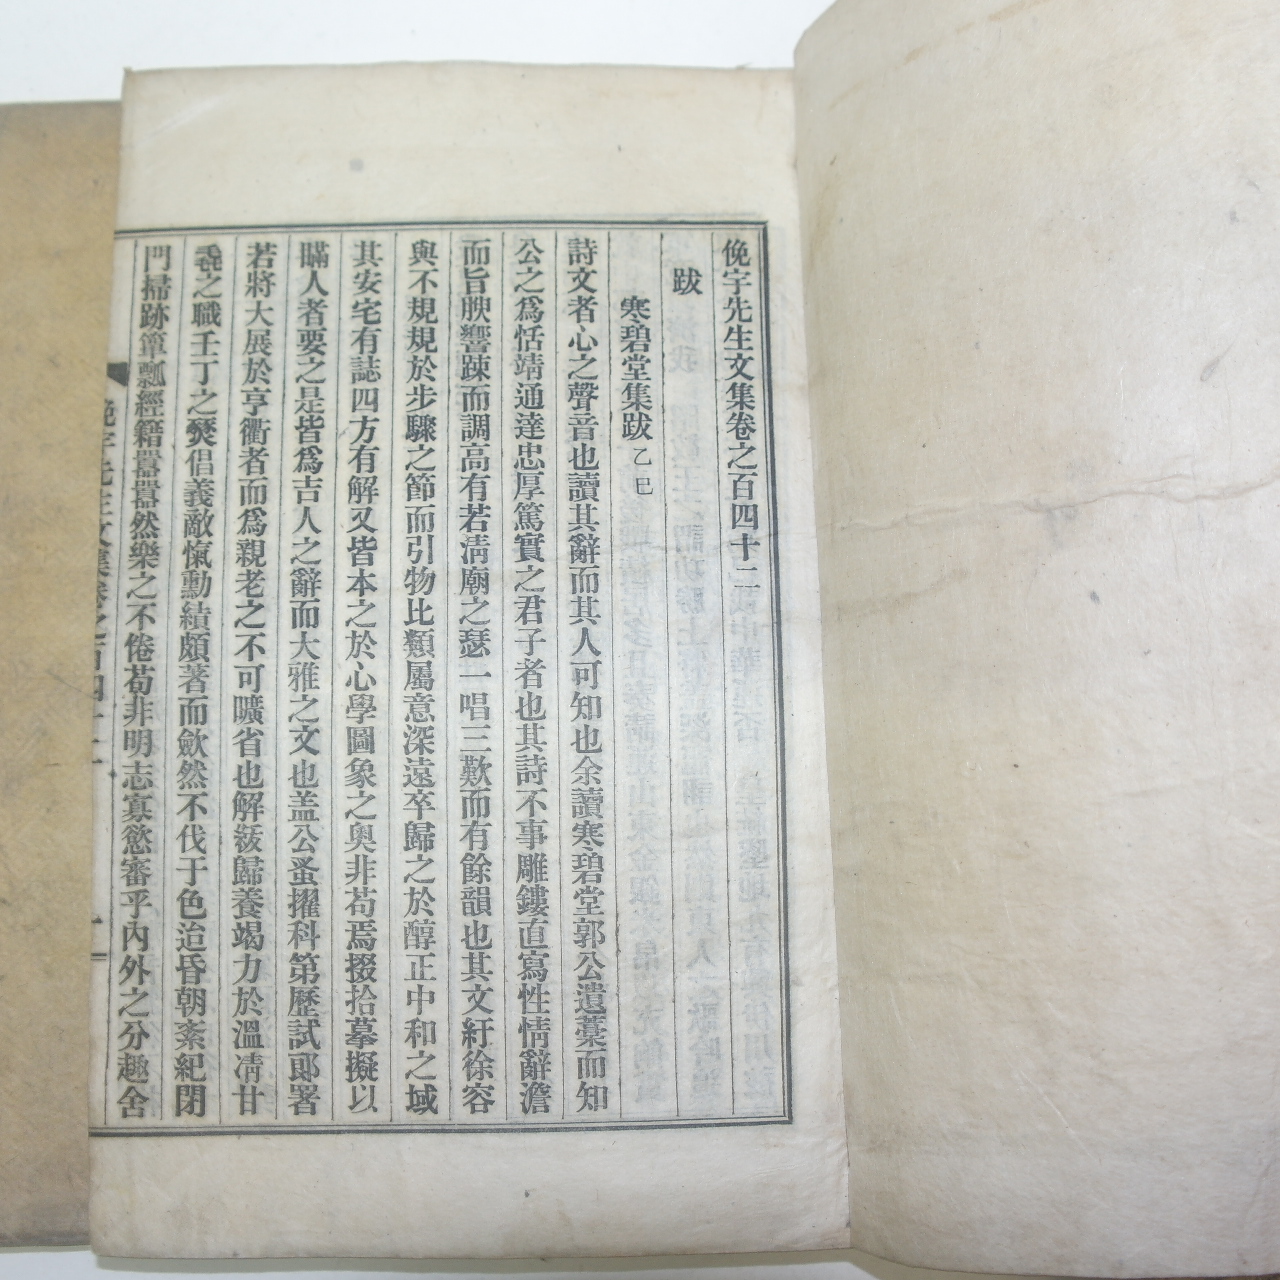 俛宇先生文集卷之百四十二
跋
寒碧堂集跋 乙巳
詩文者心之聲音也讀其辭而其人可知也余讀寒碧堂郭公遺藁而知
公之爲恬靖通達忠厚篤實之君子者也其詩不事雕鏤直寫性情辭澹
而旨腴響踈而調高有若淸廟之瑟一唱三歎而有餘韻也其文紆徐容
與不規規於步驟之節而引物比類屬意深遠卒歸之於醇正中和之域
其安宅有誌四方有解又皆本之於心學圖象之奧非苟焉掇拾摹擬以
瞞人者要之是皆爲吉人之辭而大雅之文也盖公蚤擢科第歷試郞署
若將大展於亨衢者而爲親老之不可曠省也解紱歸養竭力於溫凊甘
毳之職壬丁之燹倡義敵愾勳績頗著而歛然不伐于色迨昏朝紊紀閉
門掃跡簞瓢經籍囂囂然樂之不倦苟非明志寡慾審乎內外之分趣舍
俛宇先生文集卷之百四十二 一